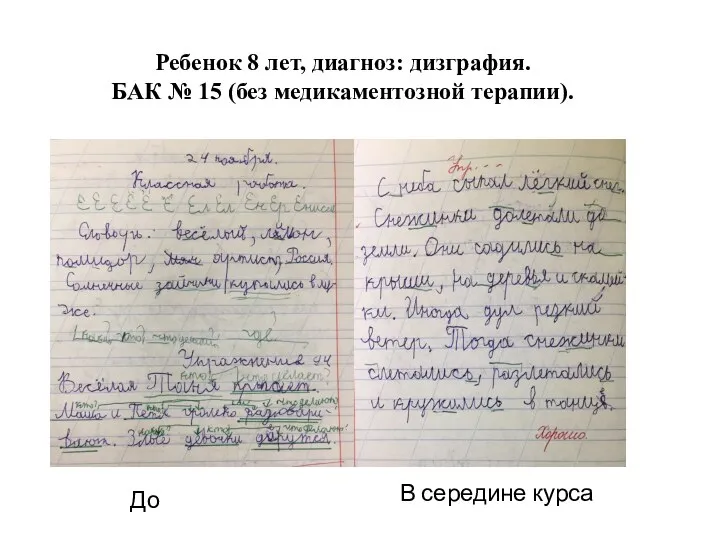 Ребенок 8 лет, диагноз: дизграфия.
БАК № 15 (без медикаментозной терапии).
24 ноября.
Классная работа.
Словарь. весёлый,
помидор, Россия.
Солнечные зайчики купались в лу
же.
что делает? где?
Упражнение
что делает?
Весёлая Таня
Маша и Петя громко разговари-
вают. Злые девочки дерутся
Упр.
С неба сыпал лёгкий снег.
Снежинки долетали до
земли. Они садились на
крыши, на деревья и скамей-
ки. Иногда дул резкий
ветер. Тогда снежинки
слетались, разлетались
и кружились в танце.
Хорошо
До
В середине курса